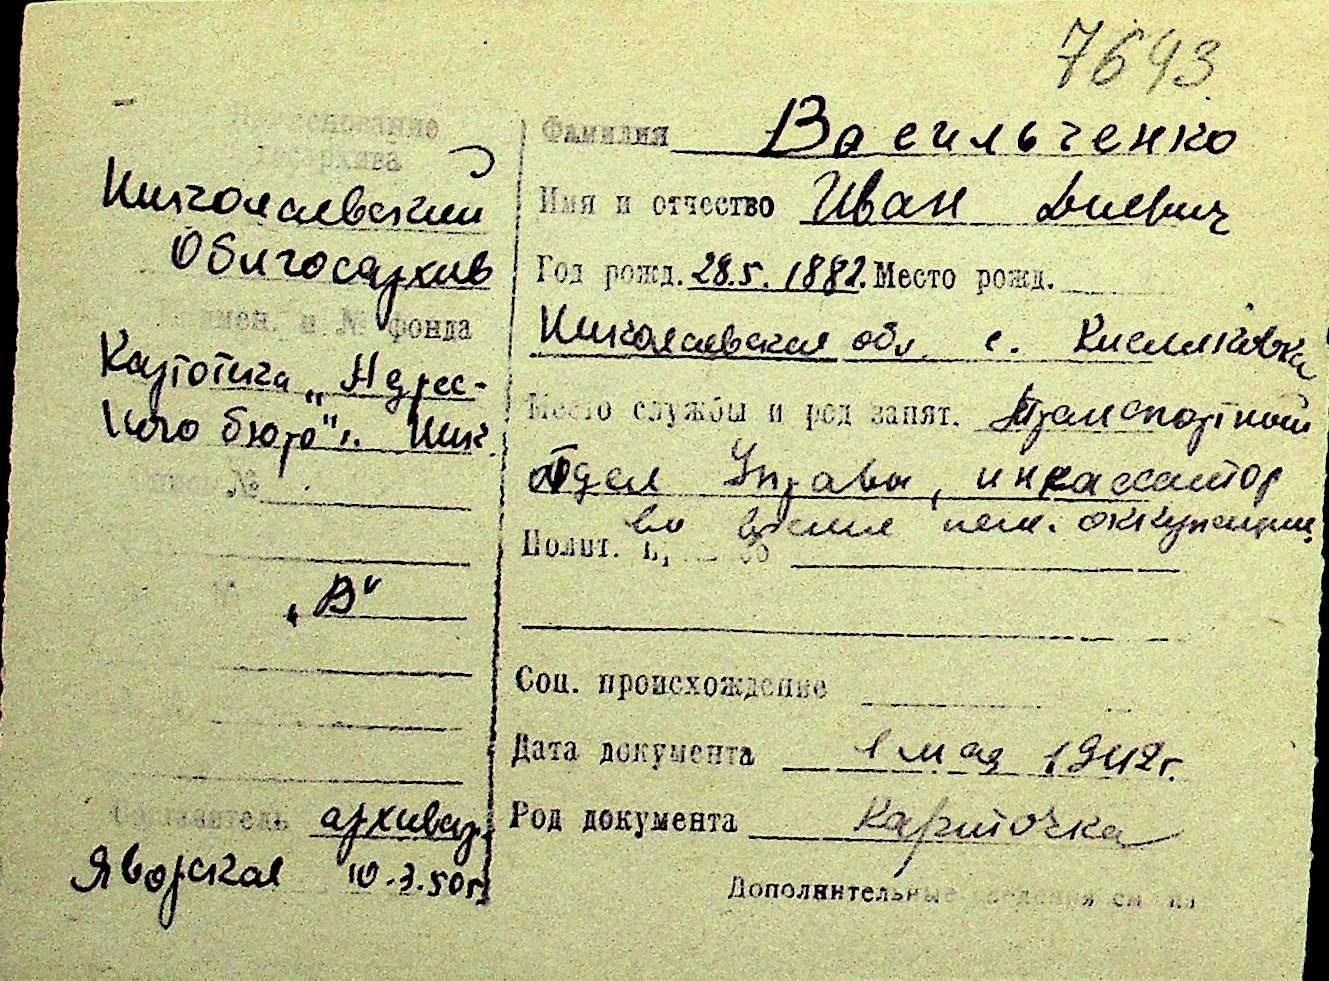 7693
Наименование
госархива
Николаевский
Облгосархив
Наимен. и № фонда
Картотека „Адрес-
ного бюро" г. Ник.
Опись №
„В"
Составитель архивар.
Яворская 10.3.50г.
Фамилия Васильченко
Имя и отчество Иван
Год рожд. 28.5.1882. Место рожд.
Николаевская обл. с. Кисляковка
Место службы и род занят. Транспортный
отдел Управы, инкассатор
во время нем. оккупации.
Полит.
Соц. происхождение
Дата документа 1 мая 1942г.
Род документа Карточка
Дополнительные сведения см. на